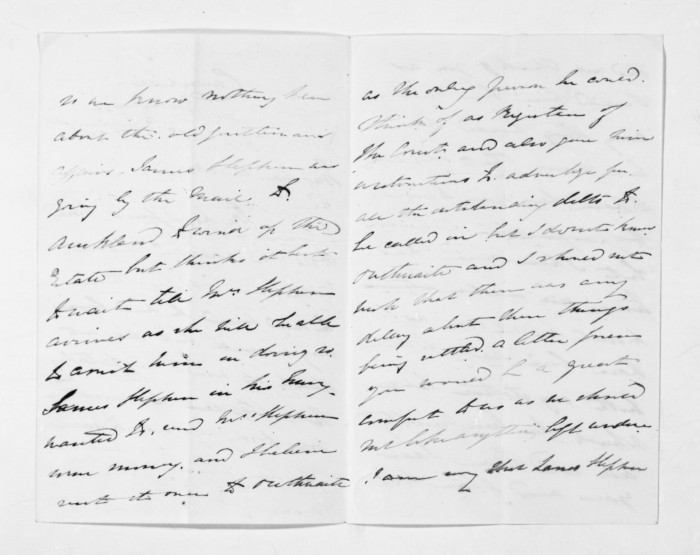 as we know nothing here
about the old
affairs. James Stephen was
going by the mail to
Auckland to wind up the
Estate but thinks it best
to wait till Mrs Stephen
arrives as she will be able
to assist him in doing so.
James Stephen in his
wanted to send Mrs Stephen
some money. and I believe
write at once to Outhwaite
as the only person he could
think of as Registrar of
the Court and also give him
instructions to advertise for
all the outstanding debts to
be called in but I do not know
Outhwaite and I should not
wish that there was any
delay about these things
being settled. a letter from
you would be a great
comfort to us as we should
not like anything left undone
I am sorry that James Stephen